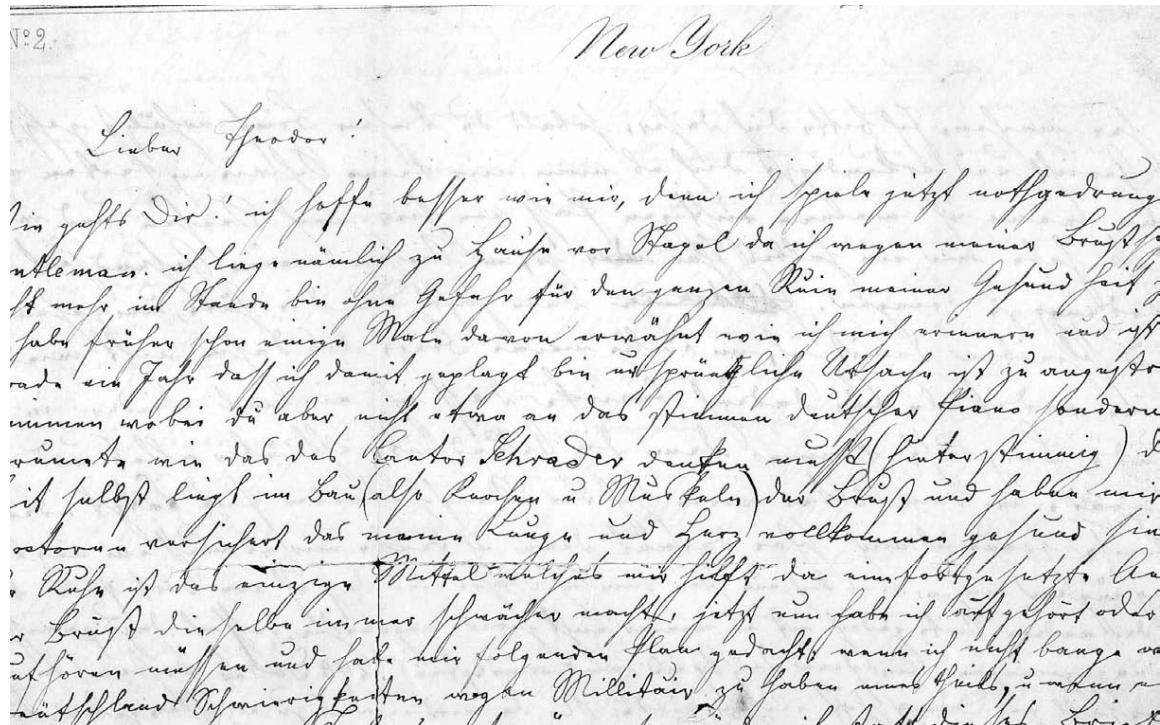 No 2.
New York
Lieber Theodor!
Wie gehts Dir! ich hoffe besser wie mir, denn ich spiele jetzt nothgedrung
ntleman. ich liege nämlich zu Hause vor Stapel da ich wegen meiner Brust
ht mehr im Stande bin ohne Gefahr für den ganzen Ruin meiner Gesundheit
habe früher schon einige Male davon erwähnt wie ich mich erinnere und ist
rade ein Jahr dass ich damit geplagt bin ursprünkliche Ursache ist zu angestr
immen wobei du aber nicht etwa an das stimmen deutscher Piano sondern
rumete wie das des Cantor Schrader denken musst (hinterstimmig) d
it selbst liegt im Bau (also Knochen u Muskeln) der Brust und haben mir
octoren versichert das meine Lunge und Herz vollkommen gesund sin
Ruhe ist das einzige Mittel welches mir hilft da eine fortgesetzte An
r Brust dieselbe immer schwächer macht, jetzt nun habe ich aufgehört oder
ufhören müssen und habe mir folgenden Plan gedacht, wenn ich nicht bange
eutschland Schwierigkeiten wegen Millitair zu haben eines theils, u wenn